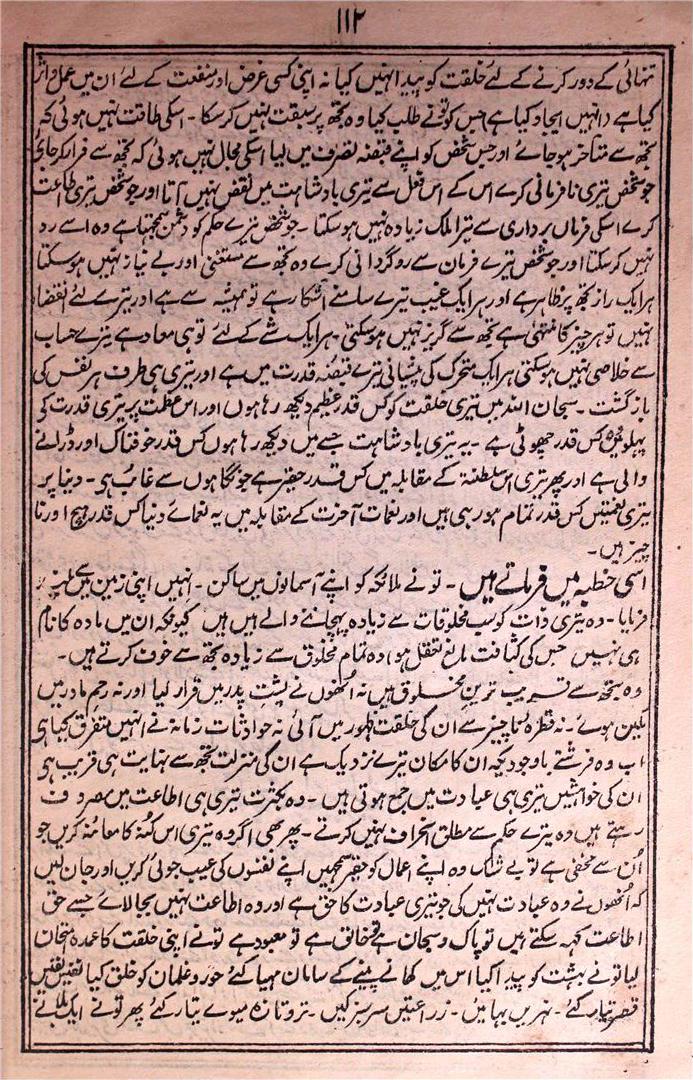 ۱۱۲
تنہائی کے دور کرنے کے لئے خلقت کو پیدا نہیں کیا نہ اپنی کسی غرض اور منفعت کے لئے ان میں عمل و اثر
کیا ہے انہیں ایجاد کیا ہے جس کو تونے طلب کیا وہ تجھ پر سبقت نہیں کر سکتا ۔ اسکی طاقت نہیں ہوئی کہ
تجھ سے متاخر ہو جائے اور جس شخص کو اپنے قبضہ تصرف میں لیا اسکی مجال نہیں ہوئی کہ تجھ سے فرار کر جائے
جو شخص تیری نافرمانی کرے اس کے اس فعل سے تیری بادشاہت میں نقص نہیں آتا اور جو شخص تیری اطاعت
کرے اسکی فرماں برداری سے تیرا ملک زیادہ نہیں ہو سکتا ۔ جو شخص تیرے حکم کو دشمن سمجھتا ہے وہ اسے رد
نہیں کر سکتا اور جو شخص تیرے فرمان سے روگردانی کرے وہ تجھ سے مستغنی اور بے نیاز نہیں ہو سکتا
ہر ایک راز تجھ پر ظاہر ہے اور ہر ایک غیب تیرے سامنے آشکار ہے تو ہمیشہ سے ہے اور تیرے لئے انقضا
نہیں تو ہر چیز کا منتہی ہے تجھ سے گریز نہیں ہو سکتی ۔ ہر ایک شے کے لئے تو ہی معاد ہے تیرے حساب
سے خلاصی نہیں ہو سکتی ہر ایک متحرک کی پیشانی تیرے قبضہ قدرت میں ہے اور تیری ہی طرف ہر نفس کی
بازگشت ۔ سبحان اللہ میں تیری خلقت کو کس قدر عظیم دیکھ رہا ہوں اور اس عظمت پر تیری قدرت کے
پہلو میں کس قدر چھوٹی ہے ۔ یہ تیری بادشاہت جسے میں دیکھ رہا ہوں کس قدر خوفناک اور ڈرانے
والی ہے اور پھر تیری اس سلطنت کے مقابلہ میں کس قدر حقیر ہے جو نگاہوں سے غائب ہی ۔ دنیا پر
تیری نعمتیں کس قدر تمام ہو رہی ہیں اور نعمات آخرت کے مقابلہ میں یہ نعمائے دنیا کس قدر ہیچ اور نا
چیز ہیں ۔
اسی خطبہ میں فرماتے ہیں ۔ تونے ملائکہ کو اپنے آسمانوں میں ساکن ۔ انہیں اپنی زمین سے بلند
فرمایا ۔ وہ تیری ذات کو سب مخلوقات سے زیادہ پہچاننے والے ہیں کیونکہ ان میں مادہ کا نام
ہی نہیں جس کی کثافت مانع تعقل ہو، وہ تمام مخلوق سے زیادہ تجھ سے خوف کرتے ہیں ۔
وہ تجھ سے قریب ترین مخلوق ہیں نہ انھوں نے پشت پدر میں قرار لیا اور نہ رحم مادر میں
مکین ہوئے ۔ نہ قطرہ ناچیز سے ان کی خلقت ظہور میں آئی نہ حوادثات زمانہ نے انہیں متفرق کیا ہی
اب وہ فرشتے باوجودیکہ ان کا مکان تیرے نزدیک ہے ان کی منزلت تجھ سے نہایت ہی قریب ہی
ان کی خواہشیں تیری ہی عبادت میں جمع ہوتی ہیں ۔ وہ بکثرت تیری ہی اطاعت میں مصروف
رہتے ہیں وہ تیرے حکم سے مطلق انحراف نہیں کرتے ۔ پھر بھی اگر وہ تیری اس کنہ کا معائنہ کریں جو
اُن سے مخفی ہے تو بے شک وہ اپنے اعمال کو حقیر سمجھیں اپنے نفسوں کی عیب جوئی کریں اور جان لیں
کہ انھوں نے وہ عبادت نہیں کی جو تیری عبادت کا حق ہے اور وہ اطاعت نہیں بجا لائے جسے حق
اطاعت کہہ سکتے ہیں تو پاک و سبحان ہے تو خالق ہے تو معبود ہے تونے اپنی خلقت کا عمدہ امتحان
لیا تونے بہشت کو پیدا کیا اس میں کھانے پینے کے سامان مہیا کئے حور و غلمان کو خلق کیا نفیس نفیس
قصر تیار کئے ۔ نہریں بہائیں ۔ زراعتیں سرسبز کیں ۔ تر و تازہ میوے تیار کئے پھر تونے ایک بلانے